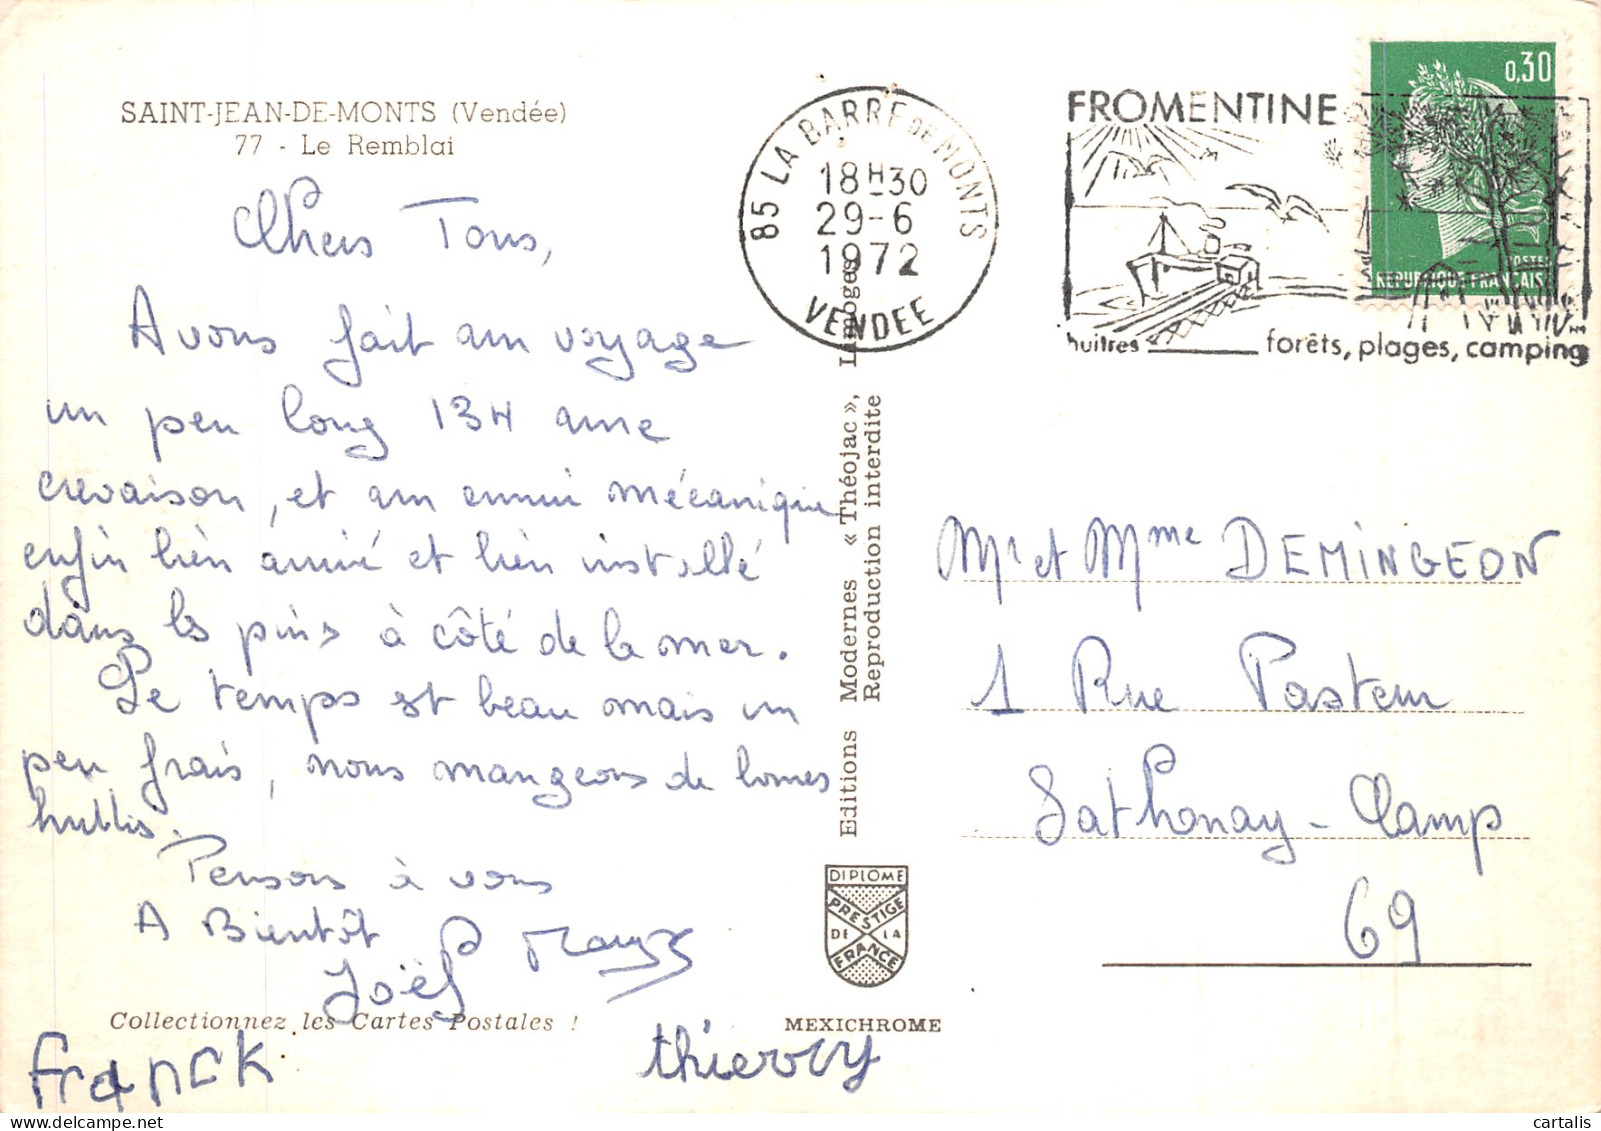 SAINT-JEAN-DE-MONTS (Vendée)
77 - Le Remblai
Chers Tous,
Avons fait un voyage
un peu long 13H une
crevaison, et un ennui mécanique
enfin bien arrivé et bien installé
dans les pins à côté de la mer.
Le temps est beau mais un
peu frais, nous mangeons de bonnes
huitres.
Pensons à vous
A Bientôt
Joël
Franck
thierry
Collectionnez les Cartes Postales !
MEXICHROME
Editions Modernes « Théojac », Limoges
Reproduction interdite
DIPLOME
PRESTIGE
DE LA
FRANCE
85 LA BARRE DE MONTS
18H30
29-6
1972
VENDEE
FROMENTINE
huitres forêts, plages, camping
0,30
POSTES
REPUBLIQUE FRANÇAISE
Mr et Mme DEMINGEON
1 Rue Pasteur
Sathonay-Camp
69
cartalis